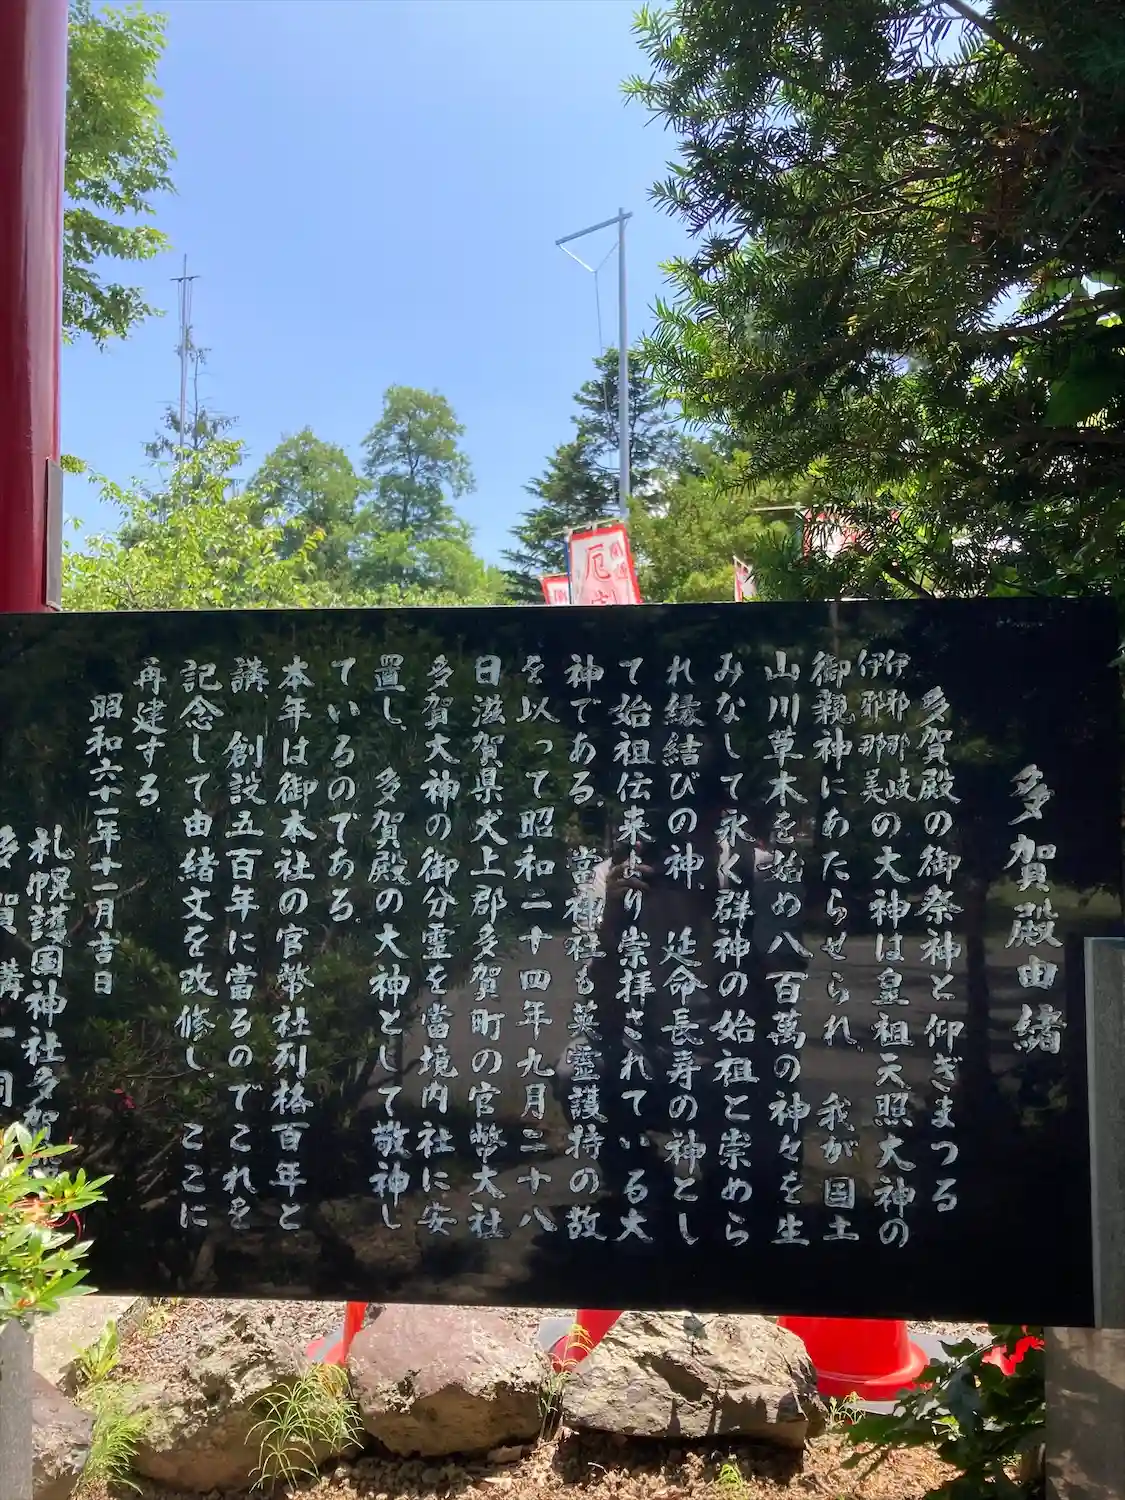 多賀殿由緒
多賀殿の御祭神と仰ぎまつる
伊邪那岐
伊邪那美の大神は皇祖天照大神の
御親神にあたらせられ、我が国土
山川草木を始め八百萬の神々を生
みなして永く群神の始祖と崇めら
れ縁結びの神、延命長寿の神とし
て始祖伝来より崇拝されている大
神である。當神社も英霊護持の故
を以って昭和二十四年九月二十八
日滋賀県犬上郡多賀町の官幣大社
多賀大神の御分霊を當境内社に安
置し、多賀殿の大神として敬神し
ているのである。
本年は御本社の官幣社列格百年と
講、創設五百年に當るのでこれを
記念して由緒文を改修し、ここに
再建する。
昭和六十一年十一月吉日
札幌護国神社多賀
多賀講一同
厄